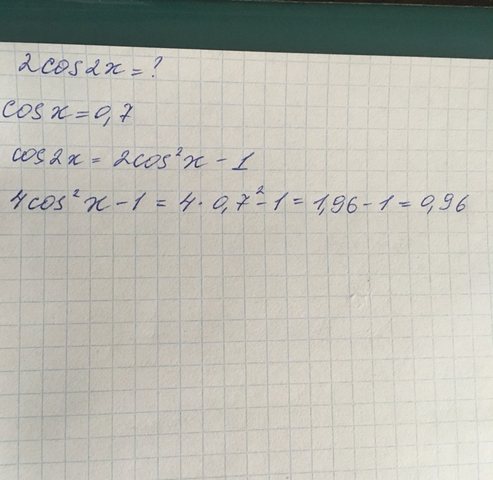 2cos2x=?
cosx=0,7
cos2x = 2cos²x - 1
4cos²x - 1 = 4·0,7²-1 = 1,96-1 = 0,96